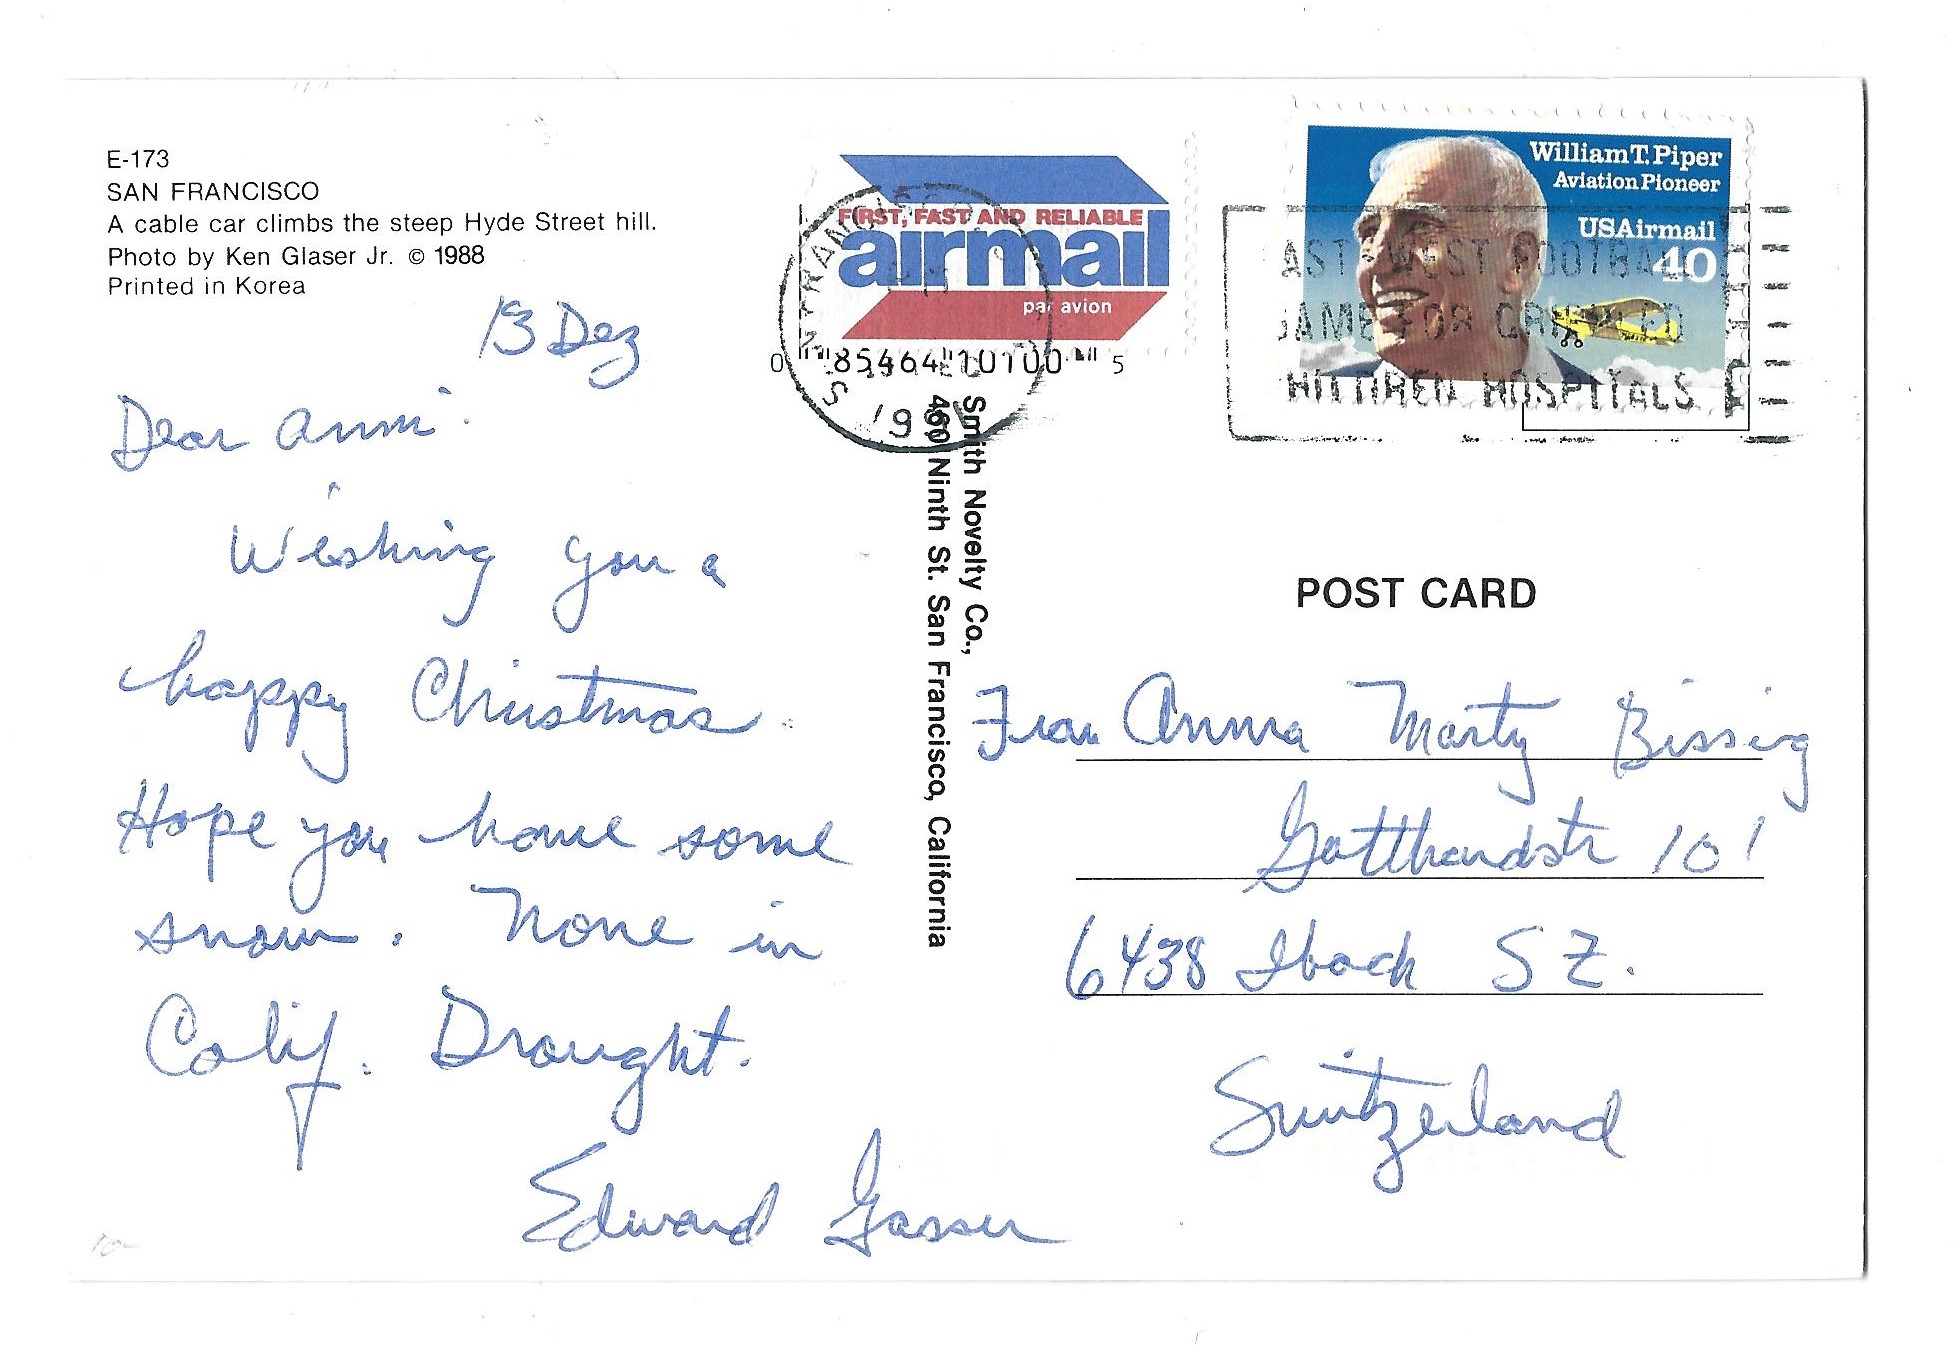 E-173
SAN FRANCISCO
A cable car climbs the steep Hyde Street hill.
Photo by Ken Glaser Jr. © 1988
Printed in Korea
13 Dez
Dear Anni:
Wishing you a
happy Christmas.
Hope you have some
snow. None in
Calif. Drought.
Edward Gasser
FIRST, FAST AND RELIABLE
airmail
par avion
0 85464 10100 5
Smith Novelty Co.,
460 Ninth St. San Francisco, California
William T. Piper
Aviation Pioneer
USAirmail
40
AST-WEST FOOTBA
AME FOR CRIPPLED
HILDREN HOSPITALS
POST CARD
Frau Anna Marty Bissig
Gotthardstr 101
6438 Ibach SZ.
Switzerland
10-